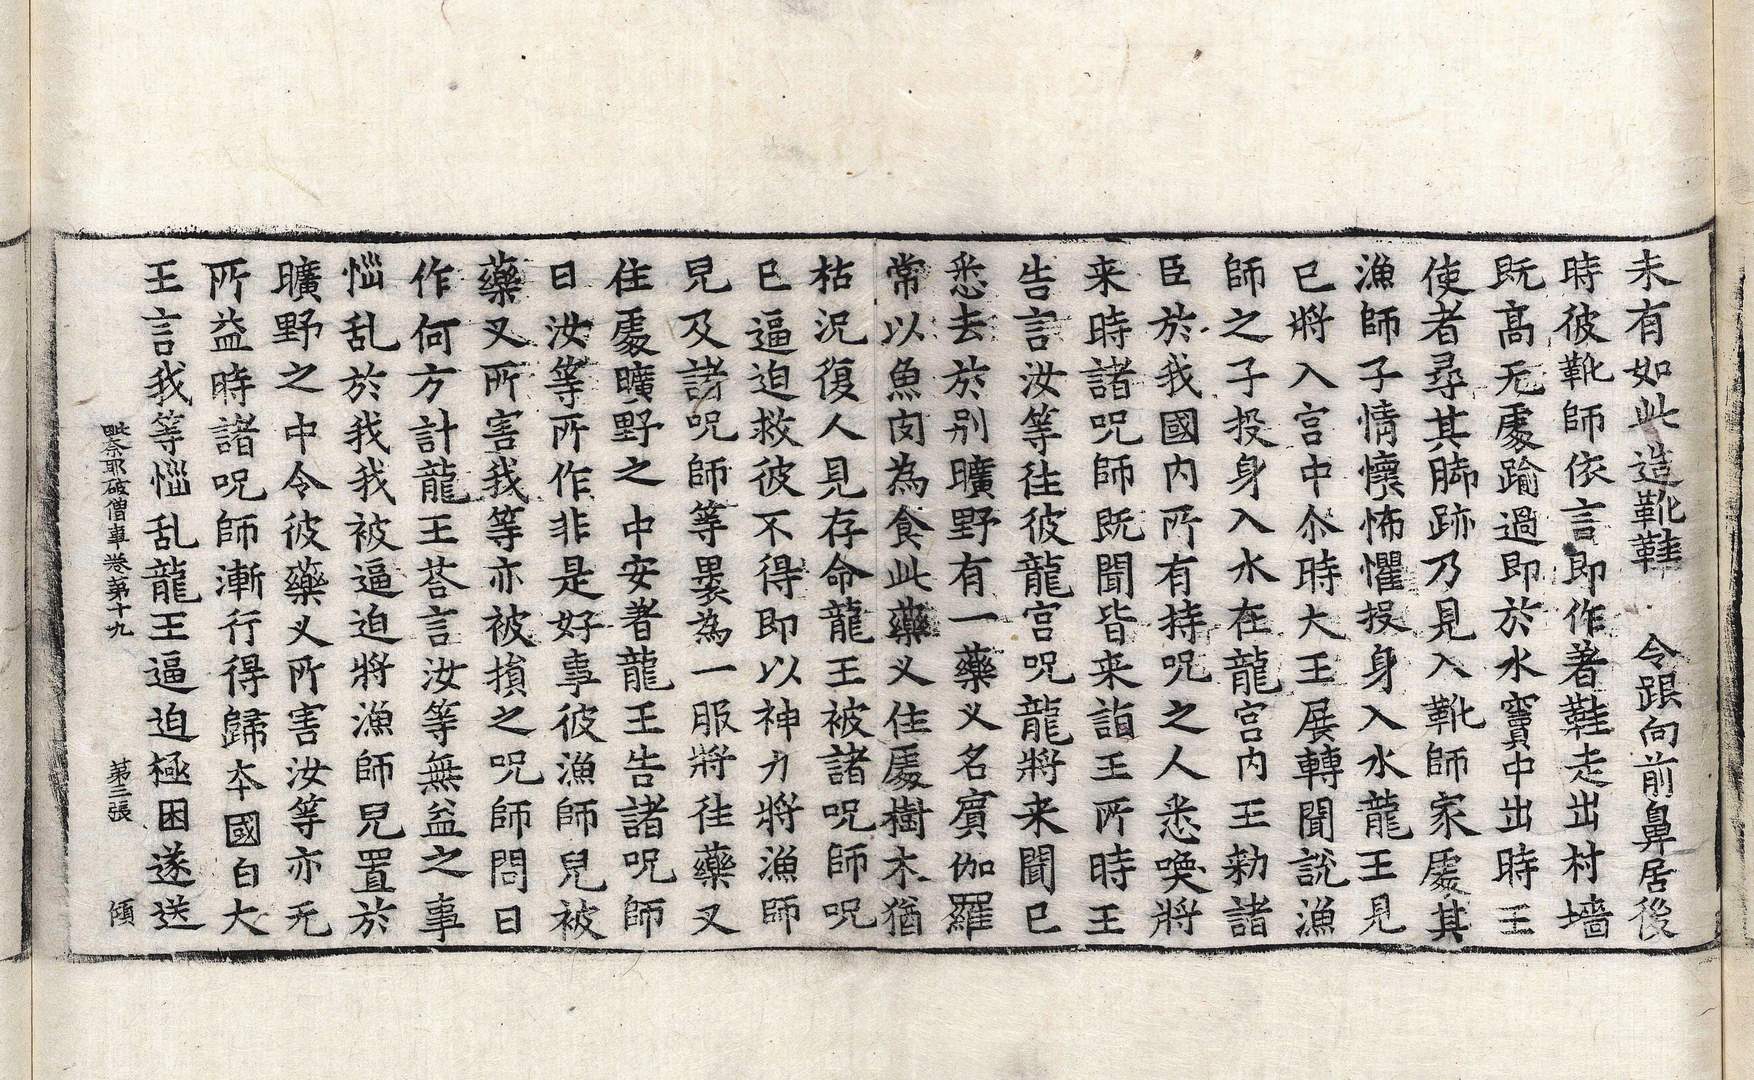 未有如此造靴鞋　令跟向前鼻居後
時彼靴師依言即作著鞋走出村墙
既髙无處踰過即於水竇中出時王
使者尋其脚跡乃見入靴師家處其
漁師子情懷怖懼投身入水龍王見
已將入宫中尒時大王展轉聞說漁
師之子投身入水在龍宫内王勑諸
臣於我國内所有持呪之人悉喚將
来時諸呪師既聞皆来詣王所時王
告言汝等往彼龍宫呪龍將来聞已
悉去於别曠野有一藥义名賔伽羅
常以魚肉為食此藥义住處樹木猶
枯况復人見存命龍王被諸呪師呪
已逼迫救彼不得即以神力將漁師
兒及諸呪師等褁為一服將往藥叉
住處曠野之中安著龍王告諸呪師
曰汝等所作非是好事彼漁師兒被
藥叉所害我等亦被損之呪師問曰
作何方計龍王荅言汝等無益之事
惱乱於我我被逼迫將漁師兒置於
曠野之中令彼藥义所害汝等亦无
所益時諸呪師漸行得歸本國白大
王言我等惱乱龍王逼迫極困遂送
毗奈耶破僧事卷第十九　第三張　傾